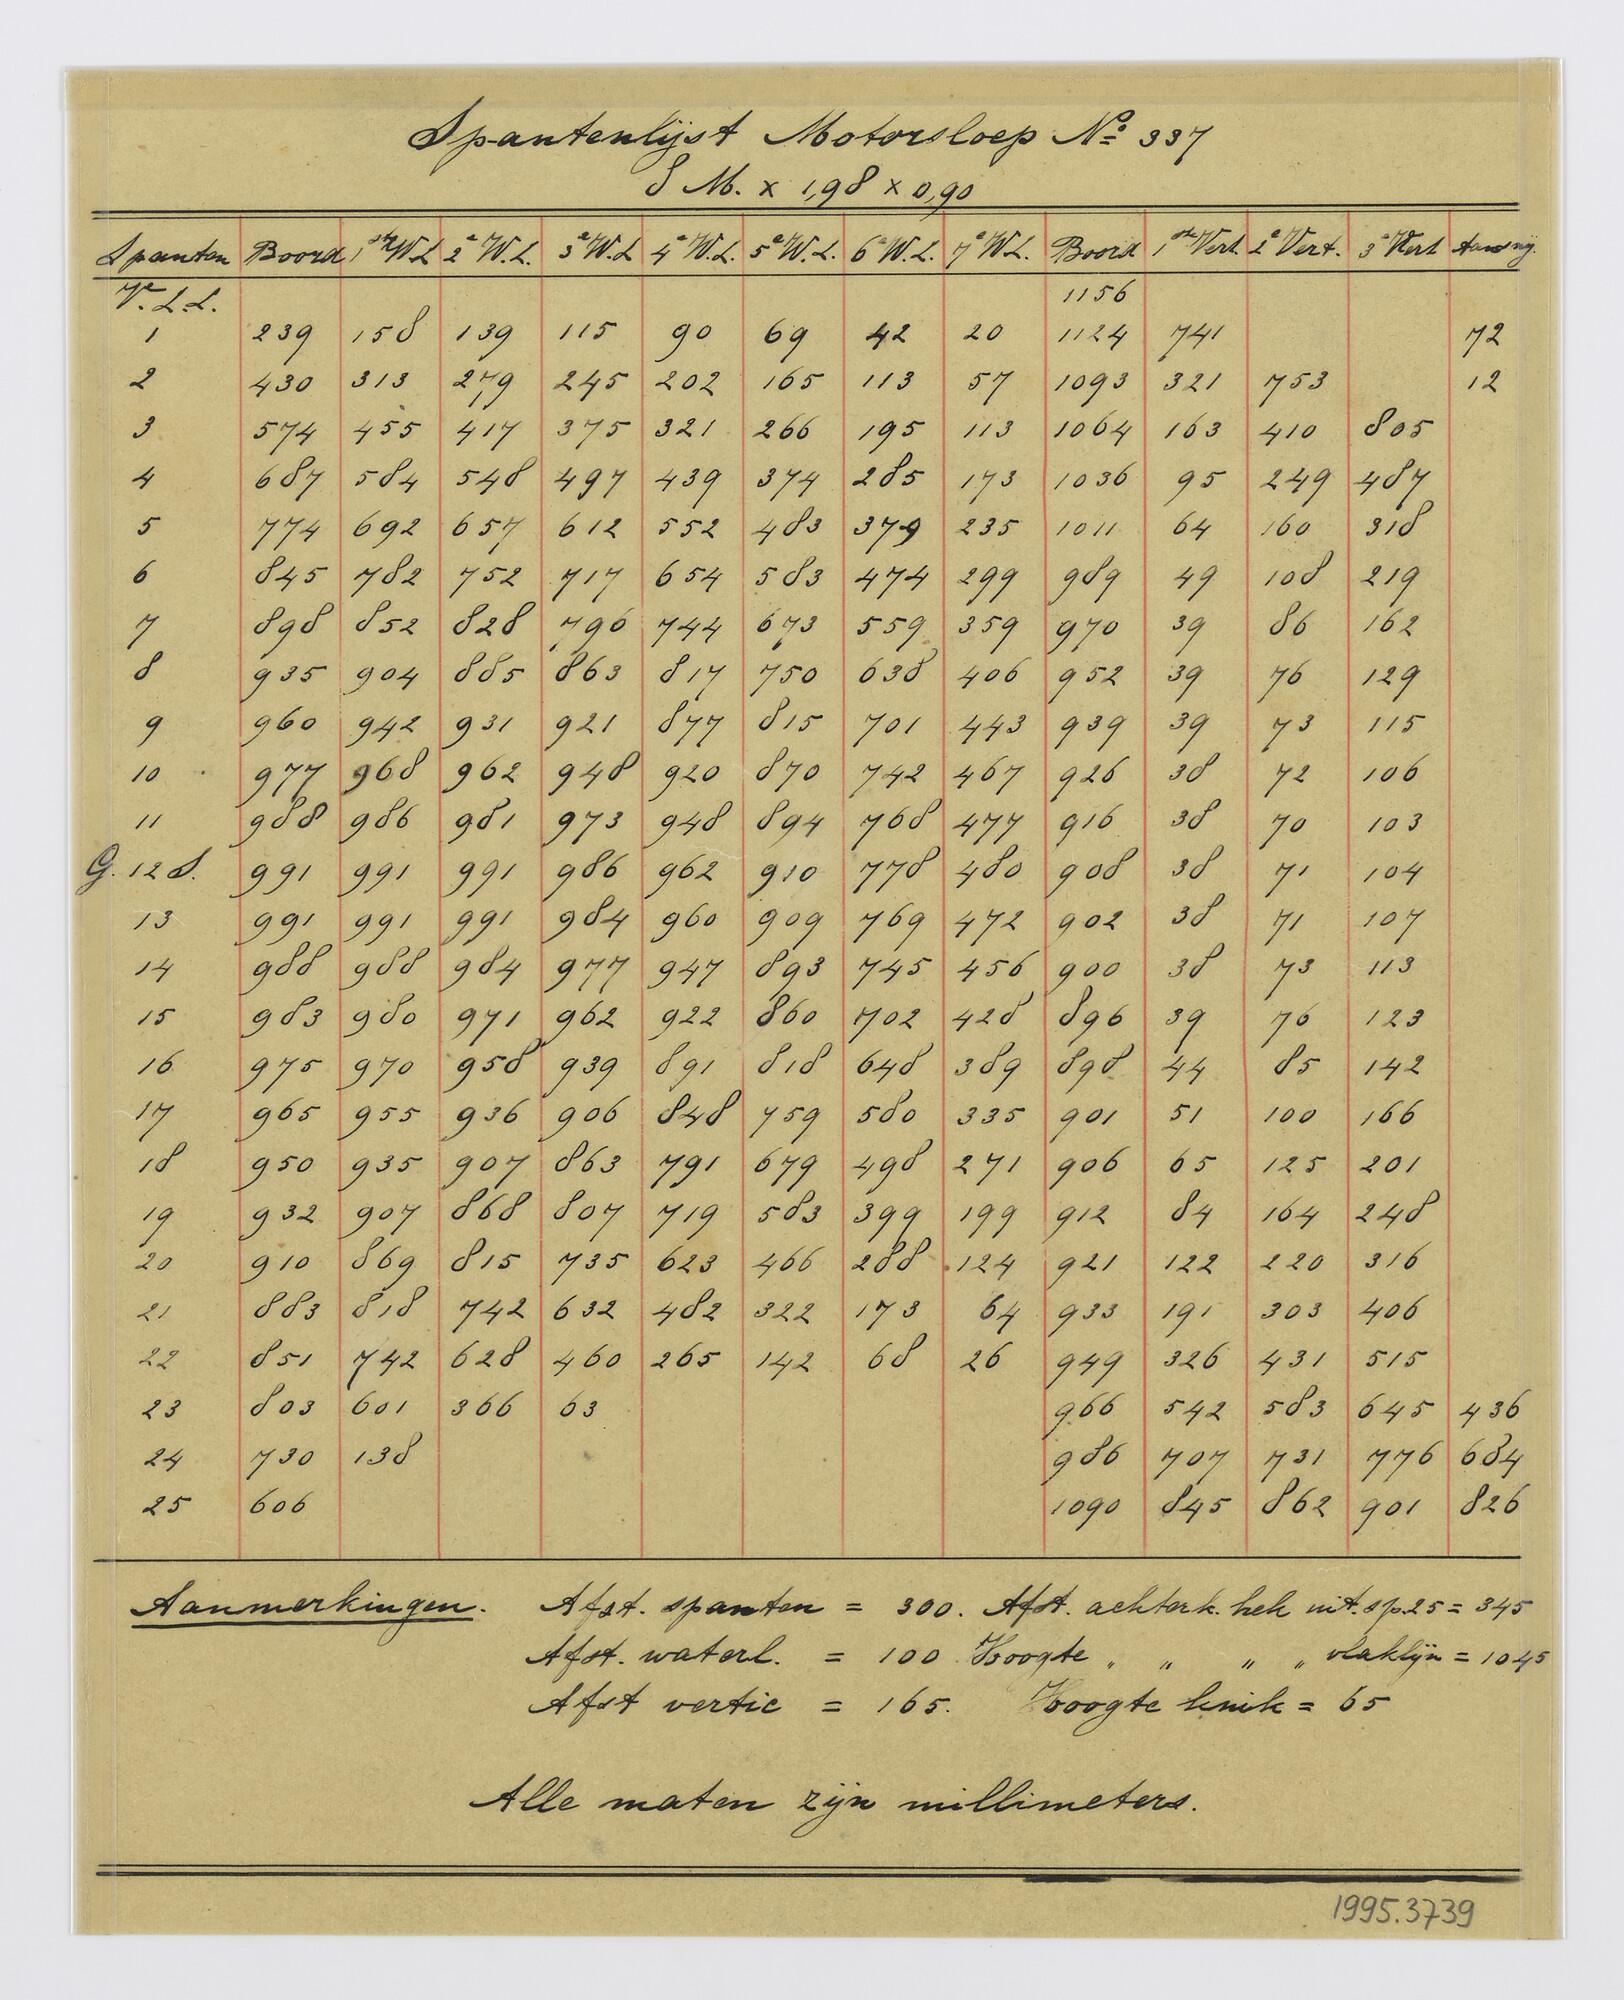 Spantenlijst Motorsloep No 337
8 M. x 1,98 x 0,90
Spanten Boord 1ste W.L 2e W.L. 3e W.L 4e W.L. 5e W.L. 6e W.L. 7e W.L. Boord 1ste Vert. 2e Vert. 3e Vert Aansnij.
Ve L.L. 1156
1 239 158 139 115 90 69 42 20 1124 741 72
2 430 313 279 245 202 165 113 57 1093 321 753 12
3 574 455 417 375 321 266 195 113 1064 163 410 805
4 687 584 548 497 439 374 285 173 1036 95 249 487
5 774 692 657 612 552 483 379 235 1011 64 160 318
6 845 782 752 717 654 583 474 299 989 49 108 219
7 898 852 828 796 744 673 559 359 970 39 86 162
8 935 904 885 863 817 750 638 406 952 39 76 129
9 960 942 931 921 877 815 701 443 939 39 73 115
10 977 968 962 948 920 870 742 467 926 38 72 106
11 988 986 981 973 948 894 768 477 916 38 70 103
G. 12 S. 991 991 991 986 962 910 778 480 908 38 71 104
13 991 991 991 984 960 909 769 472 902 38 71 107
14 988 988 984 977 947 893 745 456 900 38 73 113
15 983 980 971 962 922 860 702 428 896 39 76 123
16 975 970 958 939 891 818 648 389 898 44 85 142
17 965 955 936 906 848 759 580 335 901 51 100 166
18 950 935 907 863 791 679 498 271 906 65 125 201
19 932 907 868 807 719 583 399 199 912 84 164 248
20 910 869 815 735 623 466 288 124 921 122 220 316
21 883 818 742 632 482 322 173 64 933 191 303 406
22 851 742 628 460 265 142 68 26 949 326 431 515
23 803 601 366 63 966 542 583 645 436
24 730 138 986 707 731 776 684
25 606 1090 845 862 901 826
Aanmerkingen. Afst. spanten = 300. Afst. achterk. hek uit. sp. 25 = 345
Afst. waterl. = 100 Hoogte " " " " vlaklijn = 1045
Afst vertic = 165. Hoogte knik = 65
Alle maten zijn millimeters.
1995.3739